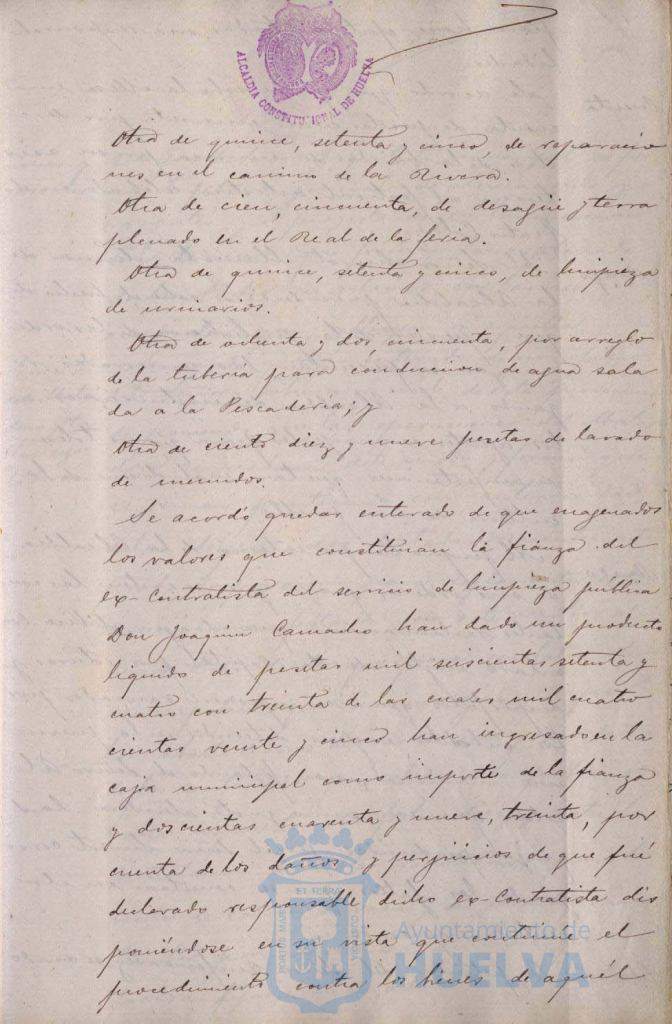 ALCALDIA CONSTITUCIONAL DE HUELVA
Otra de quince, setenta y cinco, de reparacio
nes en el camino de la Rivera.
Otra de cien, cincuenta, de desagüe y terra
plenado en el Real de la feria.
Otra de quince, setenta y cinco, de limpieza
de urinarios.
Otra de ochenta y dos, cincuenta, por arreglo
de la tuberia para conduccion de agua sala
da a la Pescaderia; y
Otra de ciento diez y nueve pesetas de lavado
de menudos.
Se acordó quedar enterado de que enagenados
los valores que constituian la fianza del
ex-contratista del servicio de limpieza pública
Don Joaquin Camacho han dado un producto
liquido de pesetas mil seiscientas setenta y
cuatro con treinta de las cuales mil cuatro
cientas veinte y cinco han ingresado en la
caja municipal como importe de la fianza
y doscientas cuarenta y nueve, treinta, por
cuenta de los daños y perjuicios de que fué
declarado responsable dicho ex-contratista dis
poniéndose en su vista que continue el
procedimiento contra los bienes de aquél
Ayuntamiento de
HUELVA